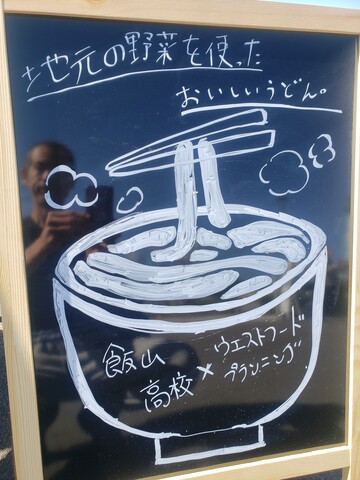 地元の野菜を使った
おいしいうどん。
飯山
高校
×
ウエストフード
プランニング